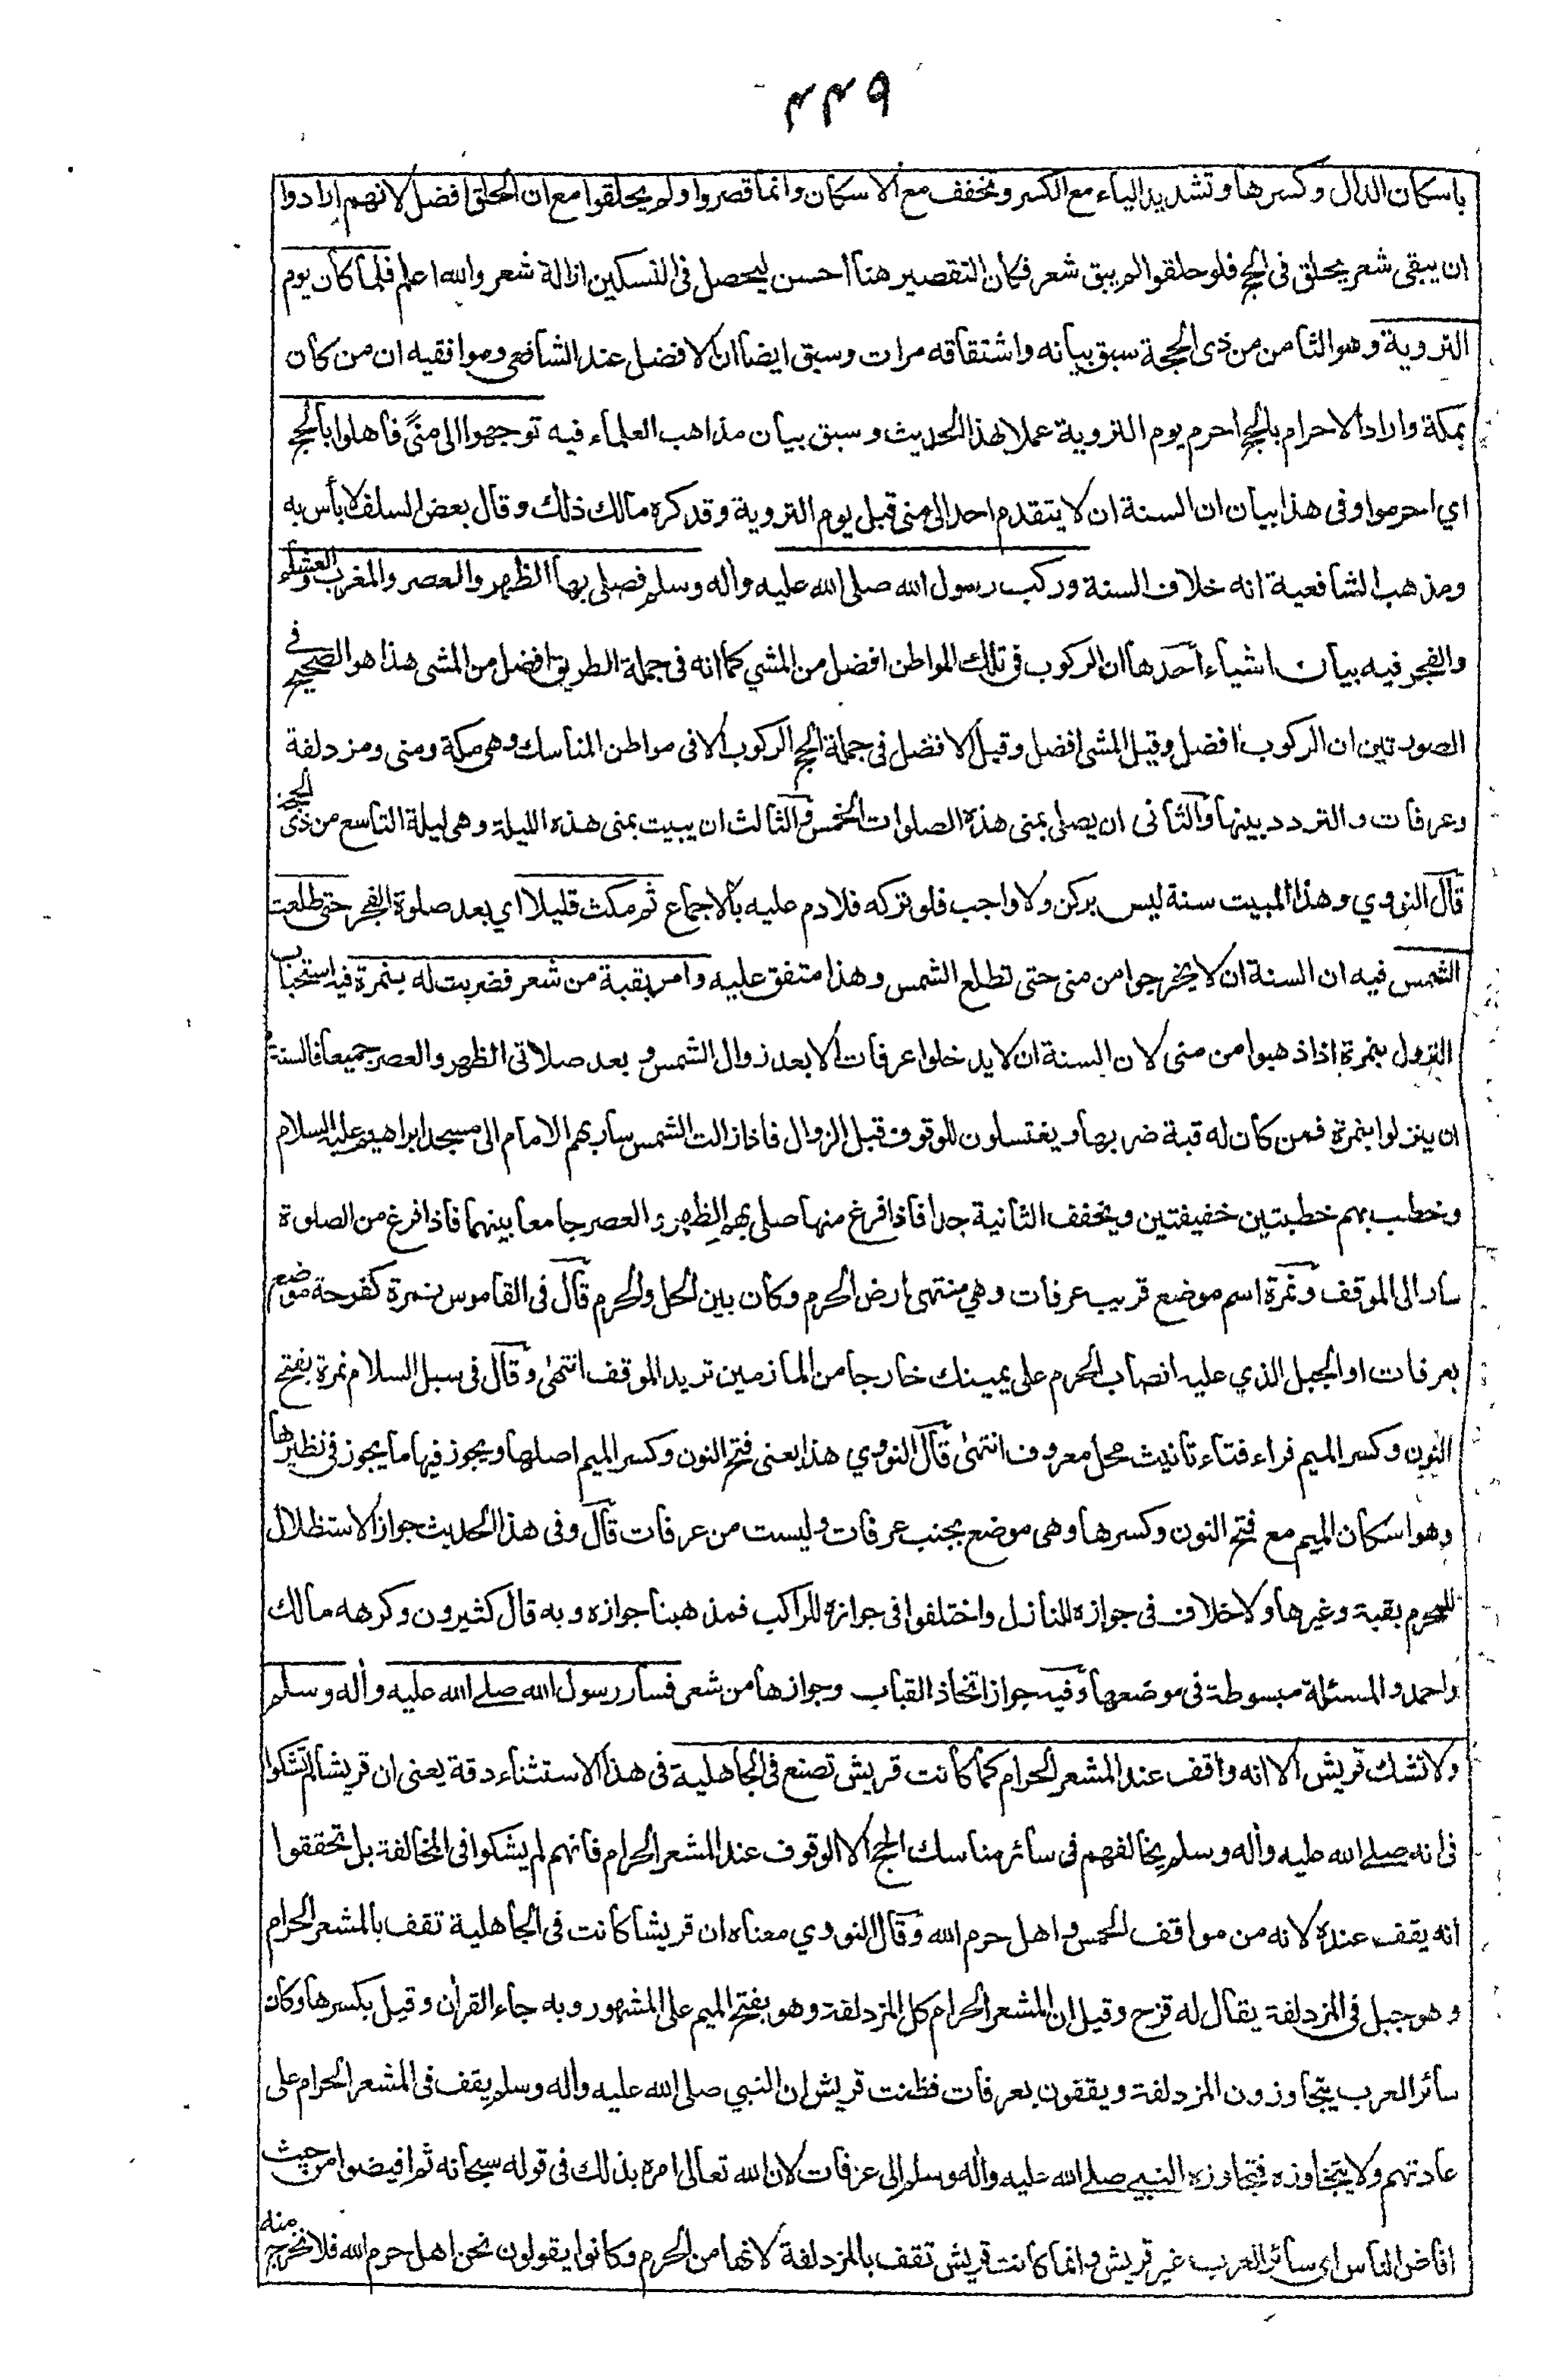 ٤٤٩
باسكان الدال وكسرها وتشديد الياء مع الكسر وتخفف مع الاسكان وانما قصروا ولم يحلقوا مع ان الحلق افضل لانهم ارادوا
ان يبقى شعر يحلق فى الحج فلو حلقوا لم يبق شعر فكان التقصير هنا احسن ليحصل فى النسكين ازالة شعر والله اعلم فلما كان يوم
التروية وهو الثامن من ذى الحجة سبق بيانه واشتقاقه مرات وسبق ايضا ان الافضل عند الشافعى وموافقيه ان من كان
بمكة واراد الاحرام بالحج احرم يوم التروية عملا بهذا الحديث وسبق بيان مذاهب العلماء فيه توجهوا الى منًى فاهلوا بالحج
اي احرموا وفى هذا بيان ان السنة ان لا يتقدم احد الى منى قبل يوم التروية وقد كره مالك ذلك وقال بعض السلف لا بأس به
ومذهب الشافعية انه خلاف السنة وركب رسول الله صلى الله عليه واله وسلم فصلى بها الظهر والعصر والمغرب والعشاء
والفجر فيه بيان اشياء احدها ان الركوب فى تلك المواطن افضل من المشي كما انه فى جملة الطريق افضل من المشى هذا هو الصحيح فى
الصورتين ان الركوب افضل وقيل المشى افضل وقيل الافضل فى جملة الحج الركوب الا فى مواطن المناسك وهى مكة ومنى ومزدلفة
وعرفات والتردد بينها والثانى ان يصلى بمنى هذه الصلوات الخمس والثالث ان يبيت بمنى هذه الليلة وهى ليلة التاسع من ذى الحجة
قال النووي وهذا المبيت سنة ليس بركن ولا واجب فلو تركه فلا دم عليه بالاجماع ثم مكث قليلا اي بعد صلوة الفجر حتى طلعت
الشمس فيه ان السنة ان لا يخرجوا من منى حتى تطلع الشمس وهذا متفق عليه وامر بقبة من شعر فضربت له بنمرة فيه استحباب
النزول بنمرة اذا ذهبوا من منى لان السنة ان لا يدخلوا عرفات الا بعد زوال الشمس و بعد صلاتى الظهر والعصر جميعا فالسنة
ان ينزلوا بنمرة فمن كان له قبة ضربها ويغتسلون للوقوف قبل الزوال فاذا زالت الشمس سار بهم الامام الى مسجد ابراهيم عليه السلام
وخطب بهم خطبتين خفيفتين ويخفف الثانية جدا فاذا فرغ منها صلى بهم الظهر والعصر جامعا بينهما فاذا فرغ من الصلوة
سار الى الموقف ونمرة اسم موضع قريب عرفات وهي منتهى ارض الحرم وكان بين الحل والحرم قال فى القاموس نمرة كفرحة موضع
بعرفات او الجبل الذي عليه انصاب الحرم على يمينك خارجا من المازمين تريد الموقف انتهى وقال فى سبل السلام نمرة بفتح
النون وكسر الميم فراء فتاء تانيث محل معروف انتهى قال النووي هذا يعنى فتح النون وكسر الميم اصلها ويجوز فيها ما يجوز فى نظيرها
وهو اسكان الميم مع فتح النون وكسرها وهى موضع بجنب عرفات وليست من عرفات قال وفى هذا الحديث جواز الاستظلال
للمحرم بقبة وغيرها ولا خلاف فى جوازه للنازل واختلفوا فى جوازه للراكب فمذهبنا جوازه وبه قال كثيرون وكرهه مالك
واحمد والمسئلة مبسوطة فى موضعها وفيه جواز اتخاذ القباب وجوازها من شعر فسار رسول الله صلى الله عليه واله وسلم
ولا تشك قريش الا انه واقف عند المشعر الحرام كما كانت قريش تصنع فى الجاهلية فى هذا الاستثناء دقة يعنى ان قريشا لم تشكوا
فى انه صلى الله عليه واله وسلم يخالفهم فى سائر مناسك الحج الا الوقوف عند المشعر الحرام فانهم لم يشكوا فى المخالفة بل تحققوا
انه يقف عنده لانه من مواقف الحمس و اهل حرم الله وقال النووي معناه ان قريشا كانت فى الجاهلية تقف بالمشعر الحرام
وهو جبل فى المزدلفة يقال له قزح وقيل ان المشعر الحرام كل المزدلفة وهو بفتح الميم على المشهور وبه جاء القران وقيل بكسرها وكان
سائر العرب يتجاوزون المزدلفة ويقفون بعرفات فظنت قريش ان النبي صلى الله عليه واله وسلم يقف فى المشعر الحرام على
عادتهم ولا يتجاوزه فتجاوزه النبي صلى الله عليه واله وسلم الى عرفات لان الله تعالى امره بذلك فى قوله سبحانه ثم افيضوا من حيث
افاض الناس اى سائر العرب غير قريش وانما كانت قريش تقف بالمزدلفة لانها من الحرم وكانوا يقولون نحن اهل حرم الله فلا نخرج منه